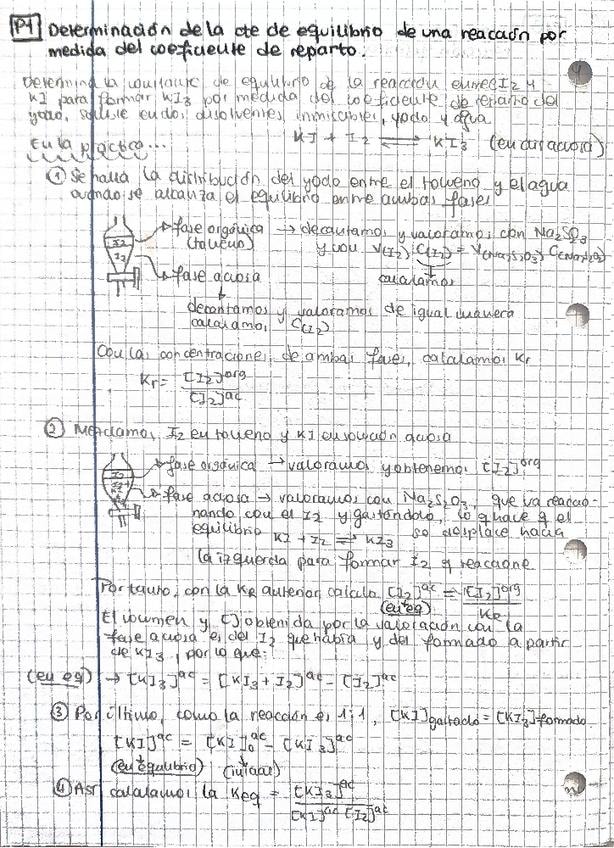 P1 Determinación de la cte de equilibrio de una reacción por
medida del coeficiente de reparto.
Determina la constante de equilibrio de la reacción entre I2 y
KI para formar KI3 por medida del coeficiente de reparto del
yodo, entre dos disolventes inmiscibles, yodo y agua.
KI + I2 ⇌ KI3 (en dis acuosa)
En la práctica...
① Se halla la distribución del yodo entre el tolueno y el agua
cuando se alcanza el equilibrio entre ambas fases
I2
I2
fase orgánica → decantamos y valoramos con Na2SO3
(tolueno) y con V(I2)·C(I2) = V(Na2S2O3) C(Na2S2O3)
calculamos
fase acuosa
decantamos y valoramos de igual manera
calculamos C(I2)
Con las concentraciones de ambas fases, calculamos Kr
Kr = [I2]org / [I2]ac
② Mezclamos I2 en tolueno y KI en solución acuosa
fase orgánica → valoramos y obtenemos [I2]org
fase acuosa → valoramos con Na2S2O3, que va reaccio-
nando con el I2 y gastándolo, lo q hace q el
equilibrio KI + I2 ⇌ KI3 se desplace hacia
la izquierda para formar I2 q reaccione
Por tanto, con la KR anterior calcula [I2]ac = [I2]org / KR
(en eq)
El volumen y [] obtenida por la valoración con la
fase acuosa es del I2 que había y del formado a partir
de KI3, por lo que:
(en eq) → [KI3]ac = [KI3 + I2]ac - [I2]ac
③ Por último, como la reacción es 1:1, [KI]gastado = [KI3]formado
[KI]ac = [KI]0ac - [KI3]ac
(en equilibrio) (inicial)
④ Así calculamos la Keq = [KI3]ac / [KI]ac [I2]ac